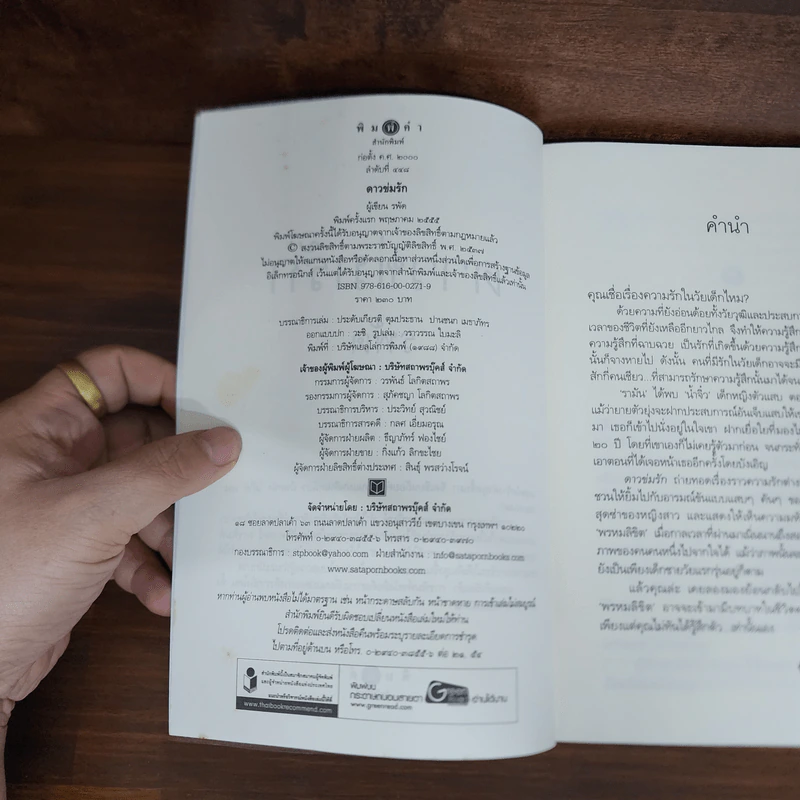 พิมพ์คำ
สำนักพิมพ์
ก่อตั้ง ค.ศ. ๒๐๐๐
ลำดับที่ ๔๔๘
ดาวข่มรัก
ผู้เขียน รพัด
พิมพ์ครั้งแรก พฤษภาคม ๒๕๕๕
พิมพ์โฆษณาครั้งนี้ได้รับอนุญาตจากเจ้าของลิขสิทธิ์ตามกฎหมายแล้ว
© สงวนลิขสิทธิ์ตามพระราชบัญญัติลิขสิทธิ์ พ.ศ. ๒๕๓๗
ไม่อนุญาตให้สแกนหนังสือหรือคัดลอกเนื้อหาส่วนหนึ่งส่วนใดเพื่อการสร้างฐานข้อมูล
อิเล็กทรอนิกส์ เว้นแต่ได้รับอนุญาตจากสำนักพิมพ์และเจ้าของลิขสิทธิ์แล้วเท่านั้น
ISBN 978-616-00-0271-9
ราคา ๒๓๐ บาท
บรรณาธิการเล่ม : ประดับเกียรติ ตุมประธาน ปานชนก เมธาภัทร
ออกแบบปก : วะชิ รูปเล่ม : วราวรรณ ใบมะลิ
พิมพ์ที่ : บริษัทเยลโล่การพิมพ์ (๑๙๘๘) จำกัด
เจ้าของผู้พิมพ์ผู้โฆษณา : บริษัทสถาพรบุ๊คส์ จำกัด
กรรมการผู้จัดการ : วรพันธ์ โลกิตสถาพร
รองกรรมการผู้จัดการ : สุภัคชญา โลกิตสถาพร
บรรณาธิการบริหาร : ประวิทย์ สุวณิชย์
บรรณาธิการสารคดี : กลศ เอี่ยมอรุณ
ผู้จัดการฝ่ายผลิต : ธีญาภัทร์ ฟองไชย์
ผู้จัดการฝ่ายขาย : กิ่งแก้ว ลิกชะไชย
ผู้จัดการฝ่ายลิขสิทธิ์ต่างประเทศ : สินธุ์ พรสว่างโรจน์
จัดจำหน่ายโดย : บริษัทสถาพรบุ๊คส์ จำกัด
๑๘ ซอยลาดปลาเค้า ๖๓ ถนนลาดปลาเค้า แขวงอนุสาวรีย์ เขตบางเขน กรุงเทพฯ ๑๐๒๒๐
โทรศัพท์ ๐-๒๙๔๐-๓๘๕๕-๖ โทรสาร ๐-๒๙๔๐-๓๙๗๐
กองบรรณาธิการ : stpbook@yahoo.com ฝ่ายสำนักงาน : info@satapornbooks.com
www.satapornbooks.com
หากท่านผู้อ่านพบหนังสือไม่ได้มาตรฐาน เช่น หน้ากระดาษสลับกัน หน้าขาดหาย การเข้าเล่มไม่สมบูรณ์
สำนักพิมพ์ยินดีรับผิดชอบเปลี่ยนหนังสือเล่มใหม่ให้ท่าน
โปรดติดต่อและส่งหนังสือคืนพร้อมระบุรายละเอียดการชำรุด
ไปตามที่อยู่ด้านบน หรือโทร. ๐-๒๙๔๐-๓๘๕๕-๖ ต่อ ๒๑, ๕๔
สำนักพิมพ์นี้เป็นสมาชิกสมาคมผู้จัดพิมพ์
และผู้จำหน่ายหนังสือแห่งประเทศไทย
www.thaibookrecommend.com
พิมพ์บน
กระดาษถนอมสายตา
www.greenread.com
Green Read อ่านได้นาน
คำนำ
คุณเชื่อเรื่องความรักในวัยเด็กไหม?
ด้วยความที่ยังอ่อนด้อยทั้งวัยวุฒิและประสบกา
เวลาของชีวิตที่ยังเหลืออีกยาวไกล จึงทำให้ความรู้สึก
ความรู้สึกที่ฉาบฉวย เป็นรักที่เกิดขึ้นด้วยความรู้สึก
นั้นก็จางหายไป ดังนั้น คนที่มีรักในวัยเด็กอาจจะมี
สักกี่คนเชียว...ที่สามารถรักษาความรู้สึกนั้นมาได้จน
'รามัน' ได้พบ 'น้ำจิ๋ว' เด็กหญิงตัวแสบ ตอ
แม้ว่ายายตัวยุ่งจะฝากประสบการณ์อันเจ็บแสบให้เข
มา เธอก็เข้าไปนั่งอยู่ในใจเขา ฝากเยื่อใยที่มองไม
๒๐ ปี โดยที่เขาเองก็ไม่เคยรู้ตัวมาก่อน จนกระทั่ง
เอาตอนที่ได้เจอหน้าเธออีกครั้งโดยบังเอิญ
ดาวข่มรัก ถ่ายทอดเรื่องราวความรักต่าง
ชวนให้ยิ้มไปกับอารมณ์ขันแบบแสบๆ คันๆ ของ
สุดซ่าของหญิงสาว และแสดงให้เห็นความมหั
'พรหมลิขิต' เมื่อกาลเวลาที่ผ่านมาเนิ่นนานถึงสอ
ภาพของคนคนหนึ่งไปจากใจได้ แม้ว่าภาพนั้นจะ
ยังเป็นเพียงเด็กชายวัยแรกรุ่นอยู่ก็ตาม
แล้วคุณล่ะ เคยลองมองย้อนกลับไป
'พรหมลิขิต' อาจจะเข้ามามีบทบาทในชีวิตค
เพียงแต่คุณไม่ทันได้รู้สึกตัว เท่านั้นเอง